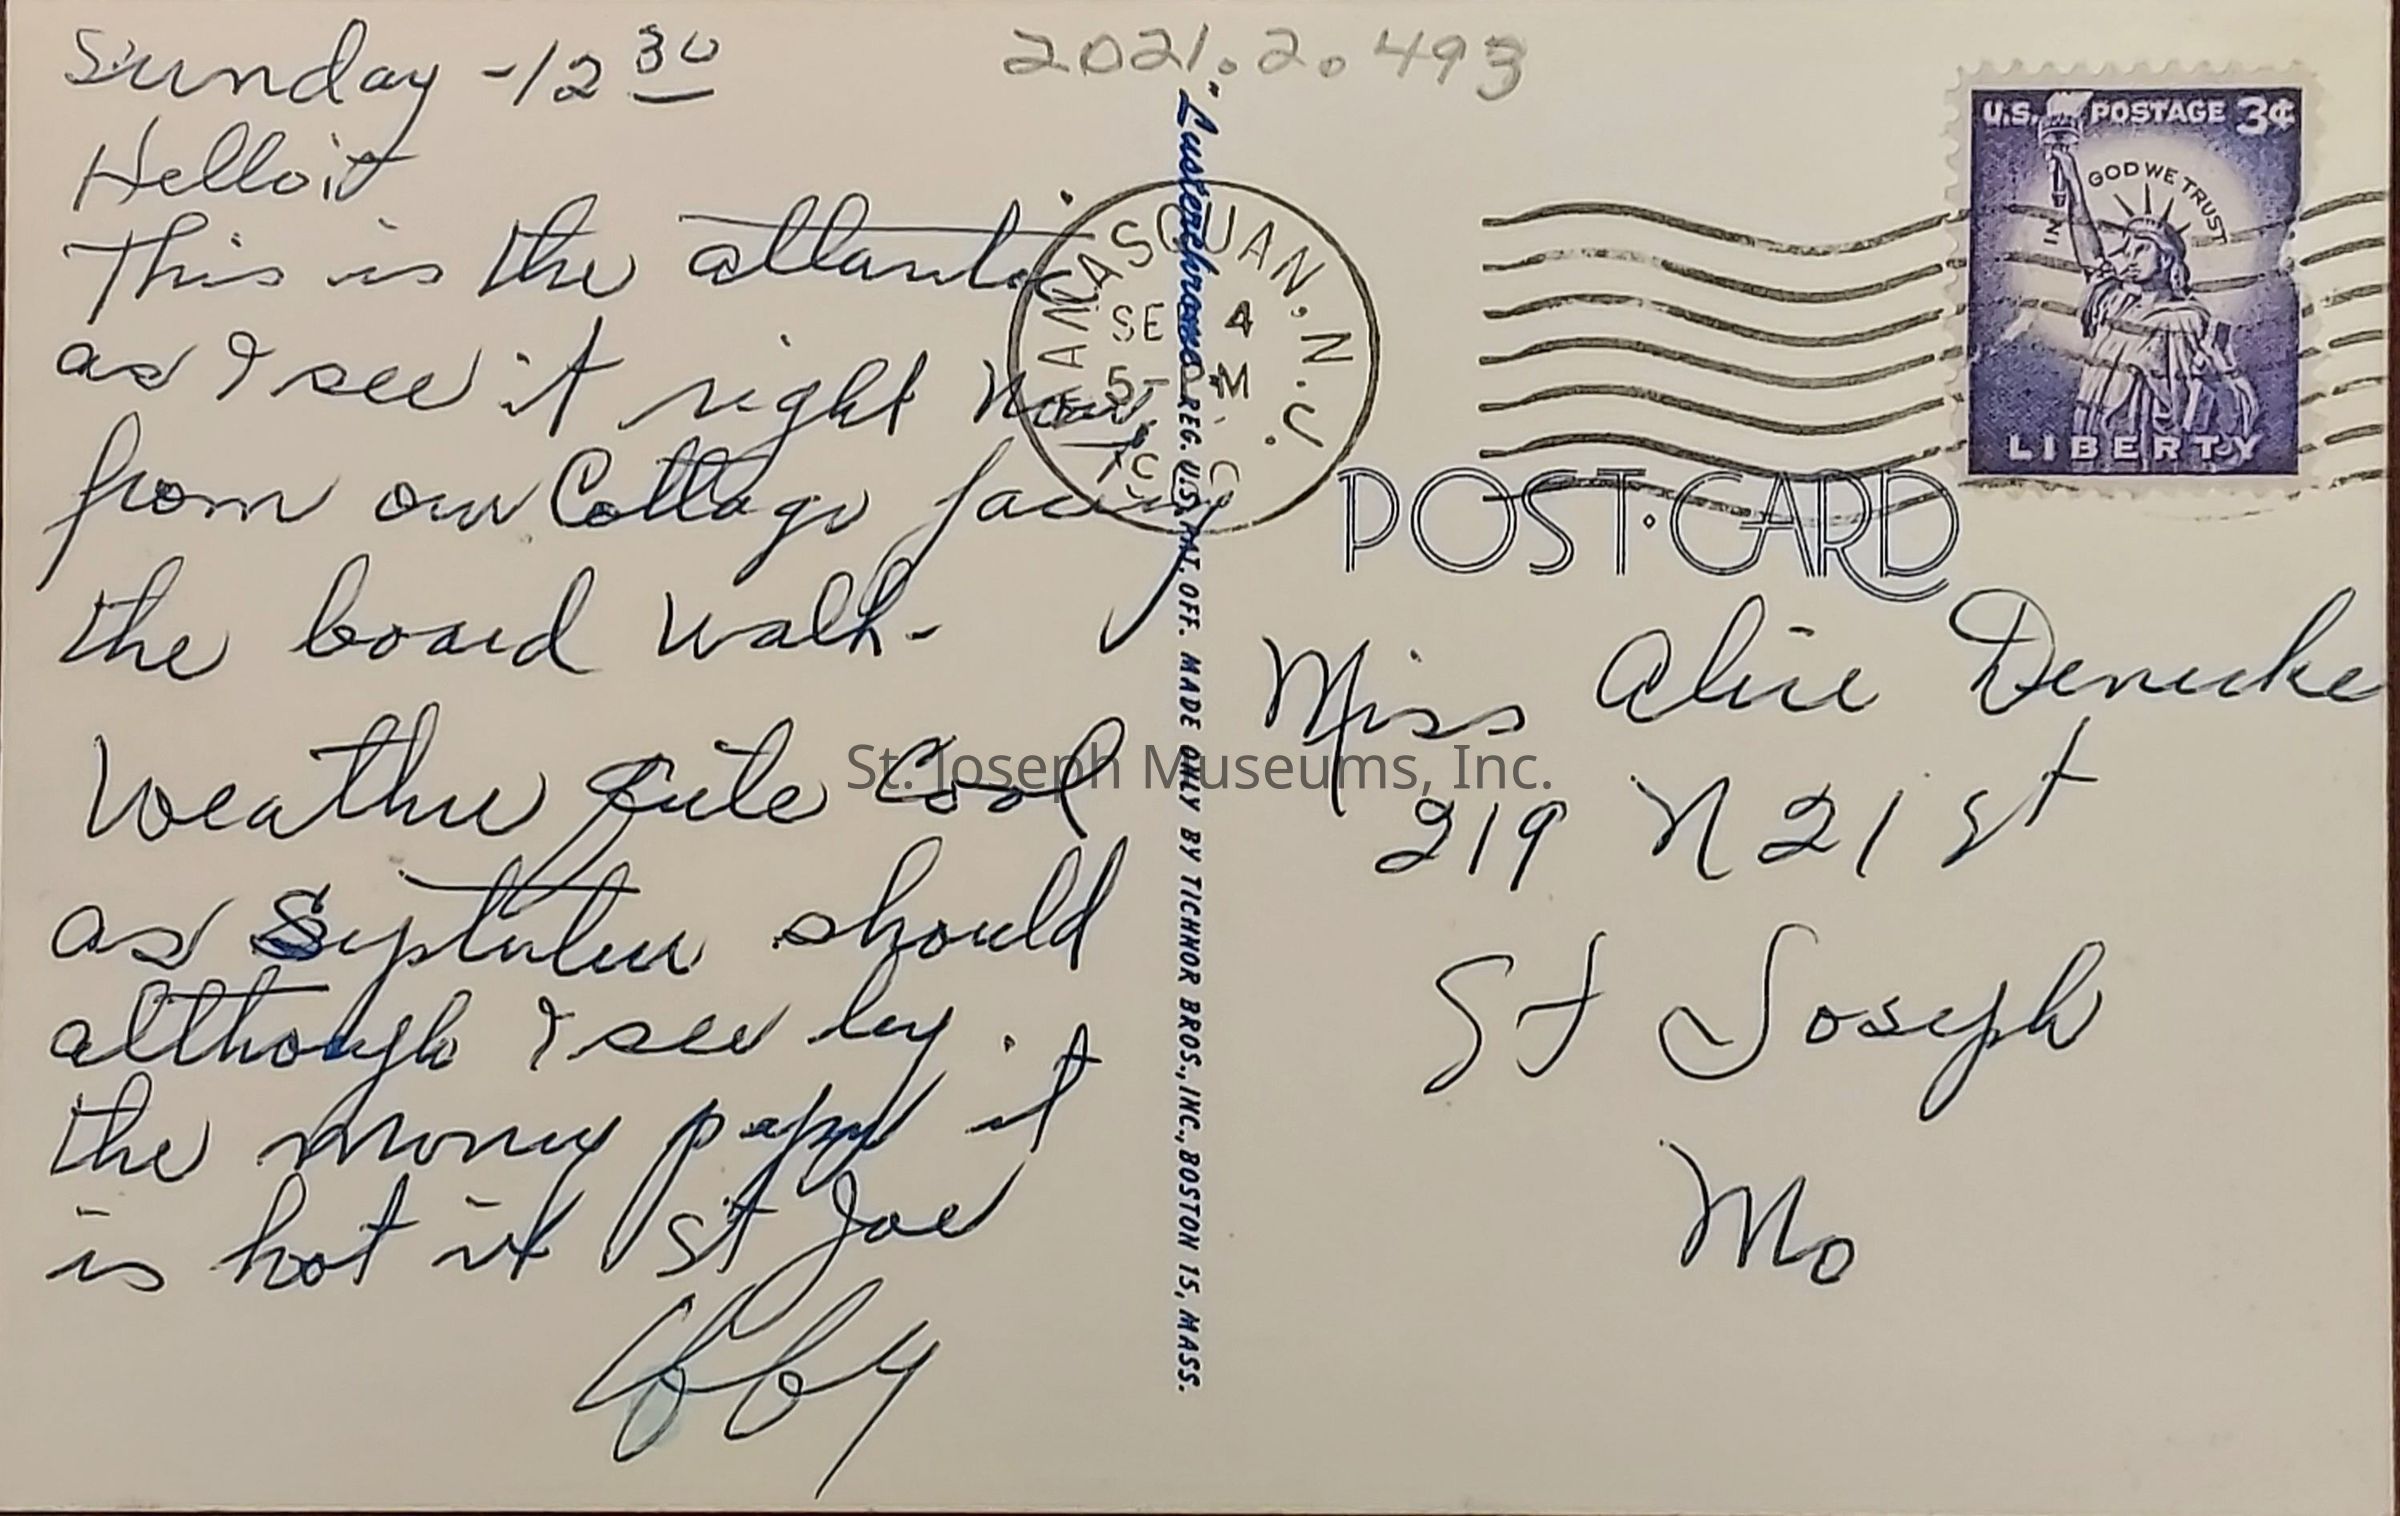 Sunday - 12 30
2021.2.493
Hello
This is the atlantic
as I see it right now
from our Cottage facing
the board walk -
Weather quite Cool
as September should
although I see by
the morning paper it
is hot in St Joe
U.S. POSTAGE 3¢
IN GOD WE TRUST
LIBERTY
MANASQUAN, N.J.
SE 4
5- PM
POST·CARD
Miss Alice Denecke
219 N 21 st
St Joseph
Mo
"Lusterchrome" REG. U.S. PAT. OFF. MADE ONLY BY TICHNOR BROS., INC., BOSTON 15, MASS.
St. Joseph Museums, Inc.